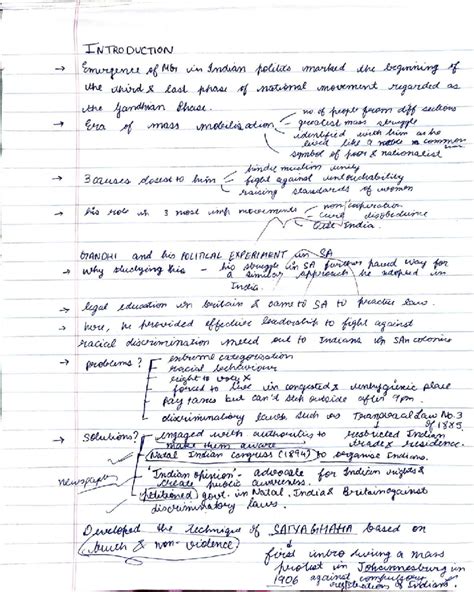 INTRODUCTION
→ Emergence of MG in Indian politics marked the beginning of
the third & last phase of national movement regarded as
the Gandhian Phase.
→ Era of mass mobilisation
no of people from diff sections
greatest mass struggle
identified with him as he
lived like a common
symbol of poor & nationalist
→ 3 causes closest to him
hindu muslim unity
fight against untouchability
raising standards of women
→ his role in 3 most imp movements
non cooperation
civil disobedience
Quit India.
GANDHI and his POLITICAL EXPERIMENT in SA
→ Why studying this - his struggle in SA further paved way for
a similar approach he adopted in
India.
→ legal education in Britain & came to SA to practice law.
→ here, he provided effective leadership to fight against
racial discrimination meted out to Indians in SAn colonies
→ problems?
extreme categorisation
racial behaviour
right to vote x
forced to live in congested & unhygienic place
pay taxes but can't step outside after 9pm.
discriminatory laws such as Transvaal Law No 3
of 1885
→ solutions?
engaged with authorities to
make them aware
restricted Indian
trade & residence.
Natal Indian Congress (1894) to organise Indians.
newspaper
'Indian opinion' - advocate for Indian rights &
create public awareness.
petitioned govt. in Natal, India & Britain against
discriminatory laws.
Developed the technique of SATYAGRAHA based on
truth & non-violence
first intro during a mass
protest in Johannesburg in
1906 against compulsory
registration of Indians.